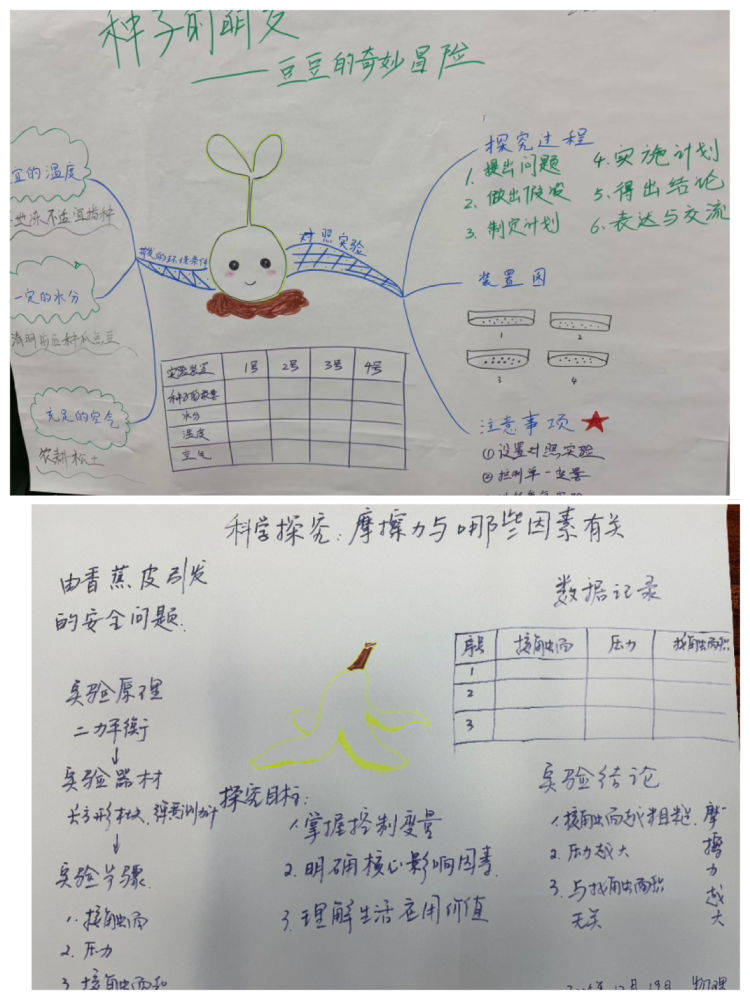 种子的萌发
——豆豆的奇妙冒险
宜的温度
地冻不适宜播种
一定的水分
清明前后种瓜点豆
充足的空气
农耕松土
萌发的环境条件
对照实验
探究过程
1. 提出问题
2. 做出假设
3. 制定计划
4. 实施计划
5. 得出结论
6. 表达与交流
装置图
1
2
3
4
实验装置 1号 2号 3号 4号
种子的数量
水分
温度
空气
注意事项
①设置对照实验
②控制单一变量
科学探究:摩擦力与哪些因素有关
由香蕉皮引发
的安全问题:
实验原理
二力平衡
实验器材
长方形木块、弹簧测力计
实验步骤
1. 接触面
2. 压力
3. 接触面积
探究目标:
1. 掌握控制变量
2. 明确核心影响因素
3. 理解生活应用价值
数据记录
序号 接触面 压力 接触面积
1
2
3
实验结论
1. 接触面越粗糙
2. 压力越大
摩擦力越大
3. 与接触面积
无关
12月19日 物理